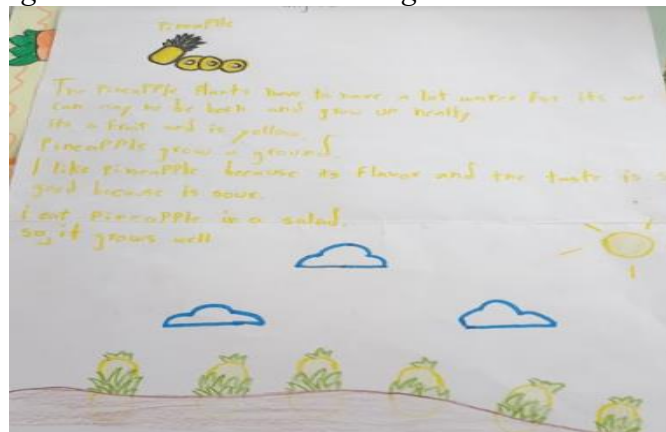 PineaPPle
The PineaPPle Plants have to have a lot water for its
can to be born and grow up neatly
its a fruit and is yellow.
PineaPPle grow ground.
I like PineaPPle because its Flavor and the taste is s
good because is sour.
I eat PineaPPle in a salad.
so, it grows well